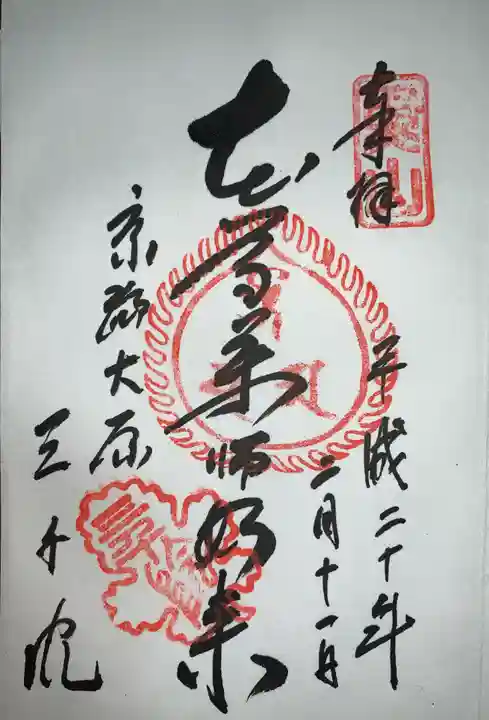 奉拝
平成二十年
二月十一日
本尊薬師如来
京都大原
三千院